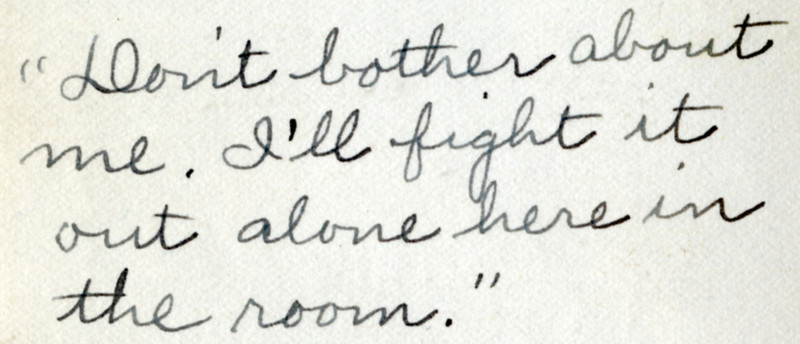 "Don't bother about
me. I'll fight it
out alone here in
the room."